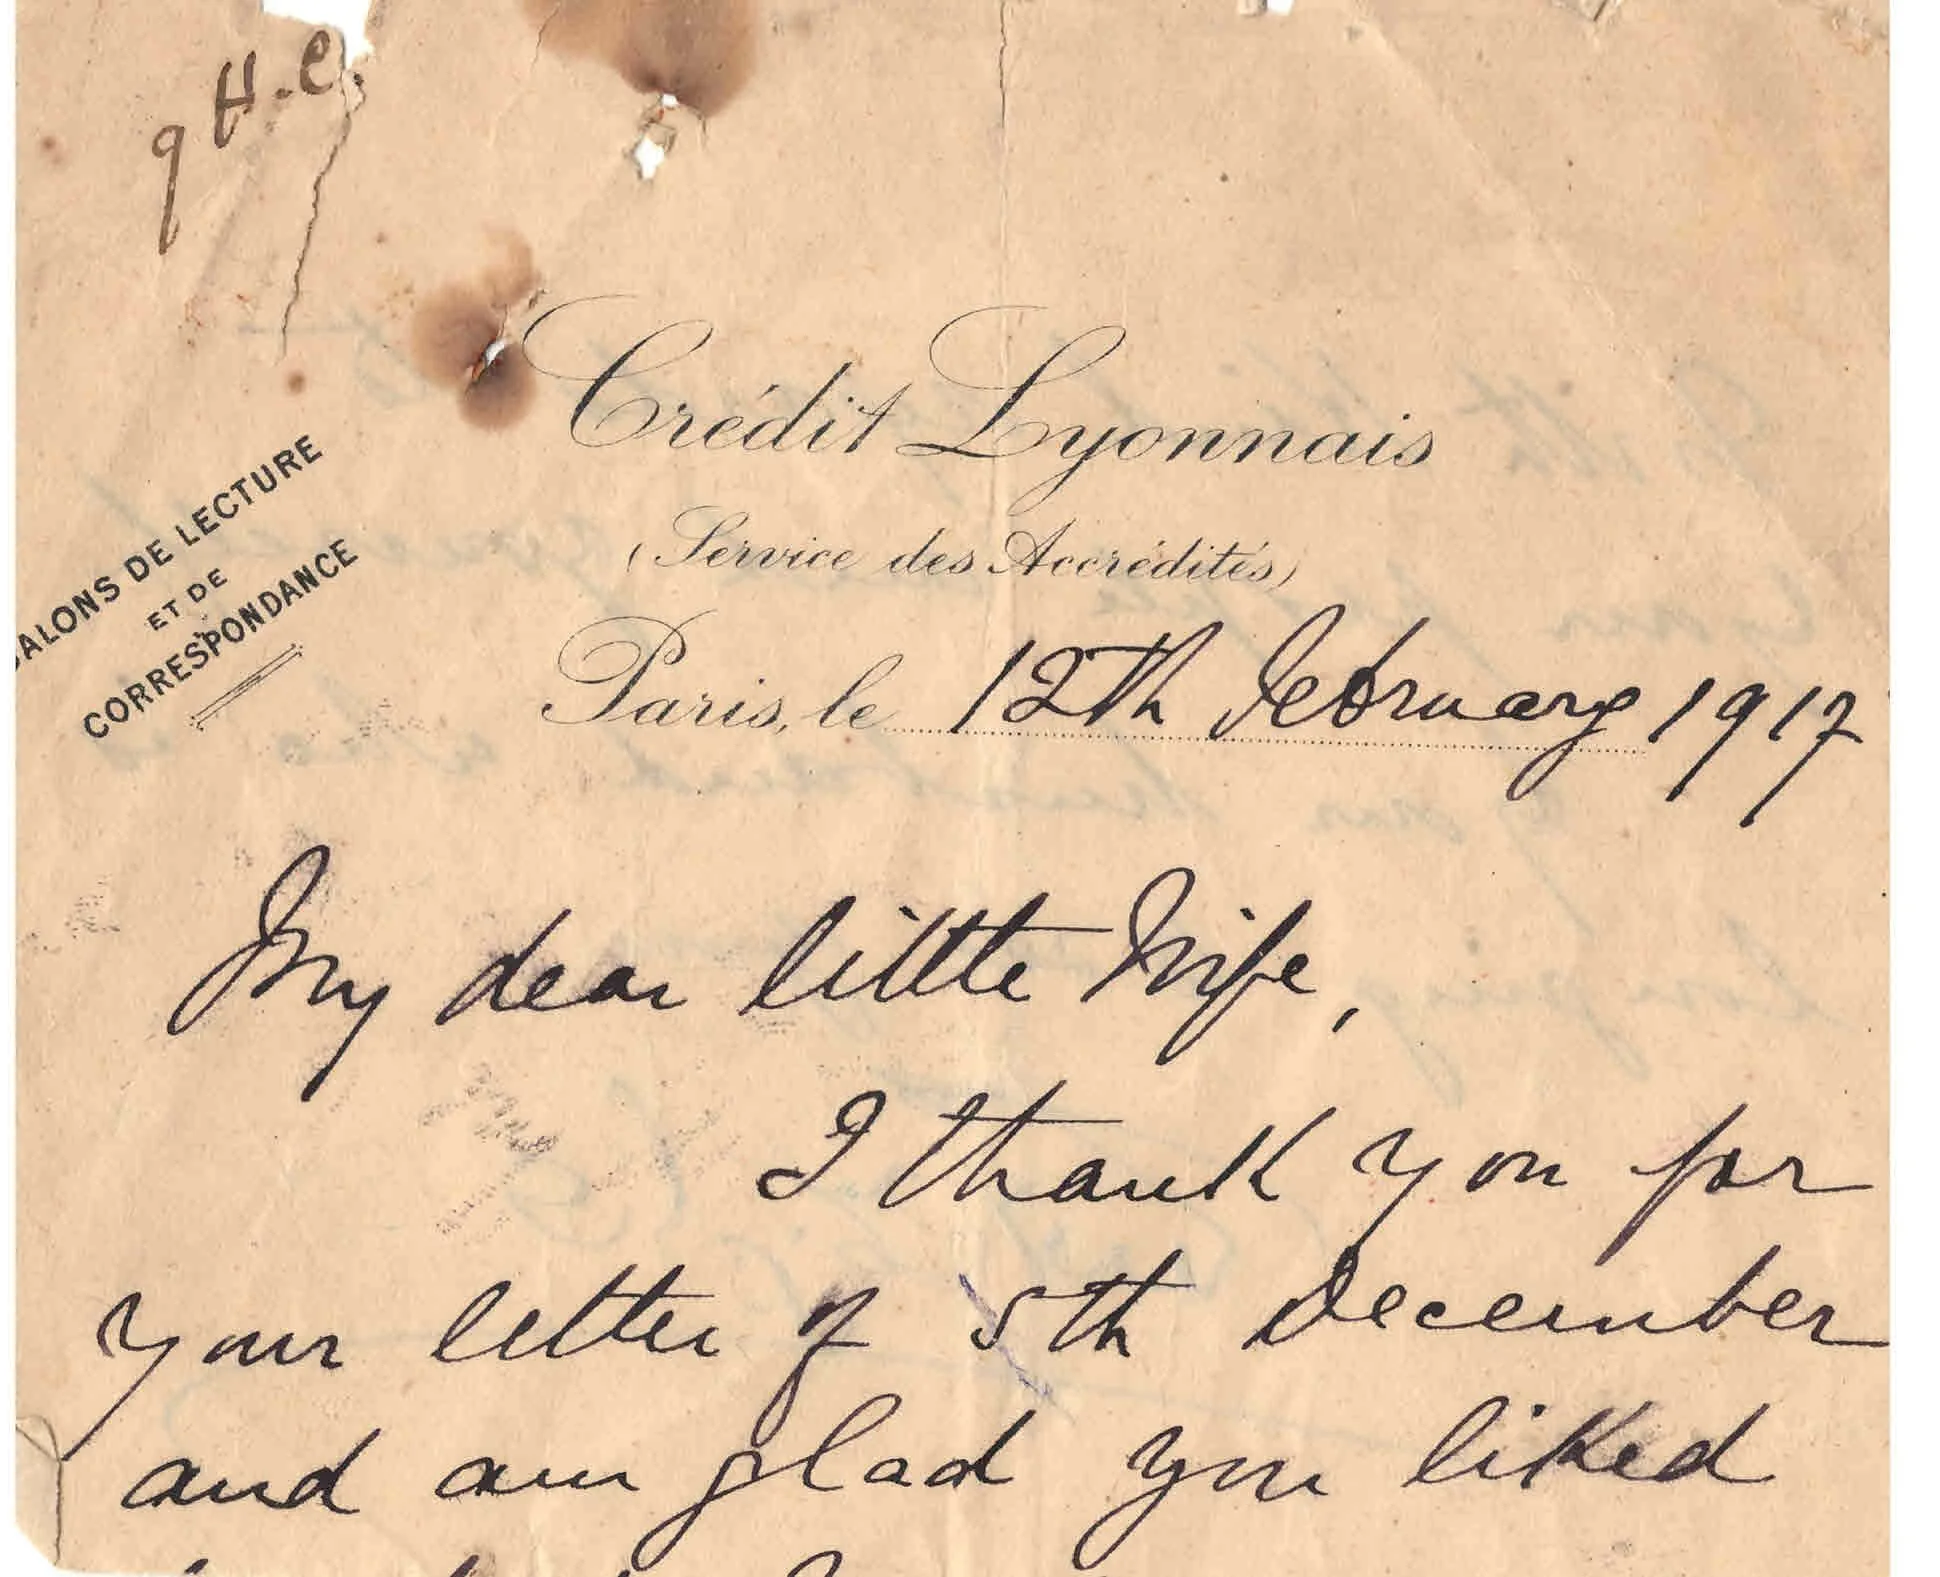 9 H.C.
Crédit Lyonnais
(Service des Accrédités)
SALONS DE LECTURE
ET DE
CORRESPONDANCE
Paris, le 12th February 1917
My dear little Wife,
I thank you for
your letter of 5th December
and am glad you liked